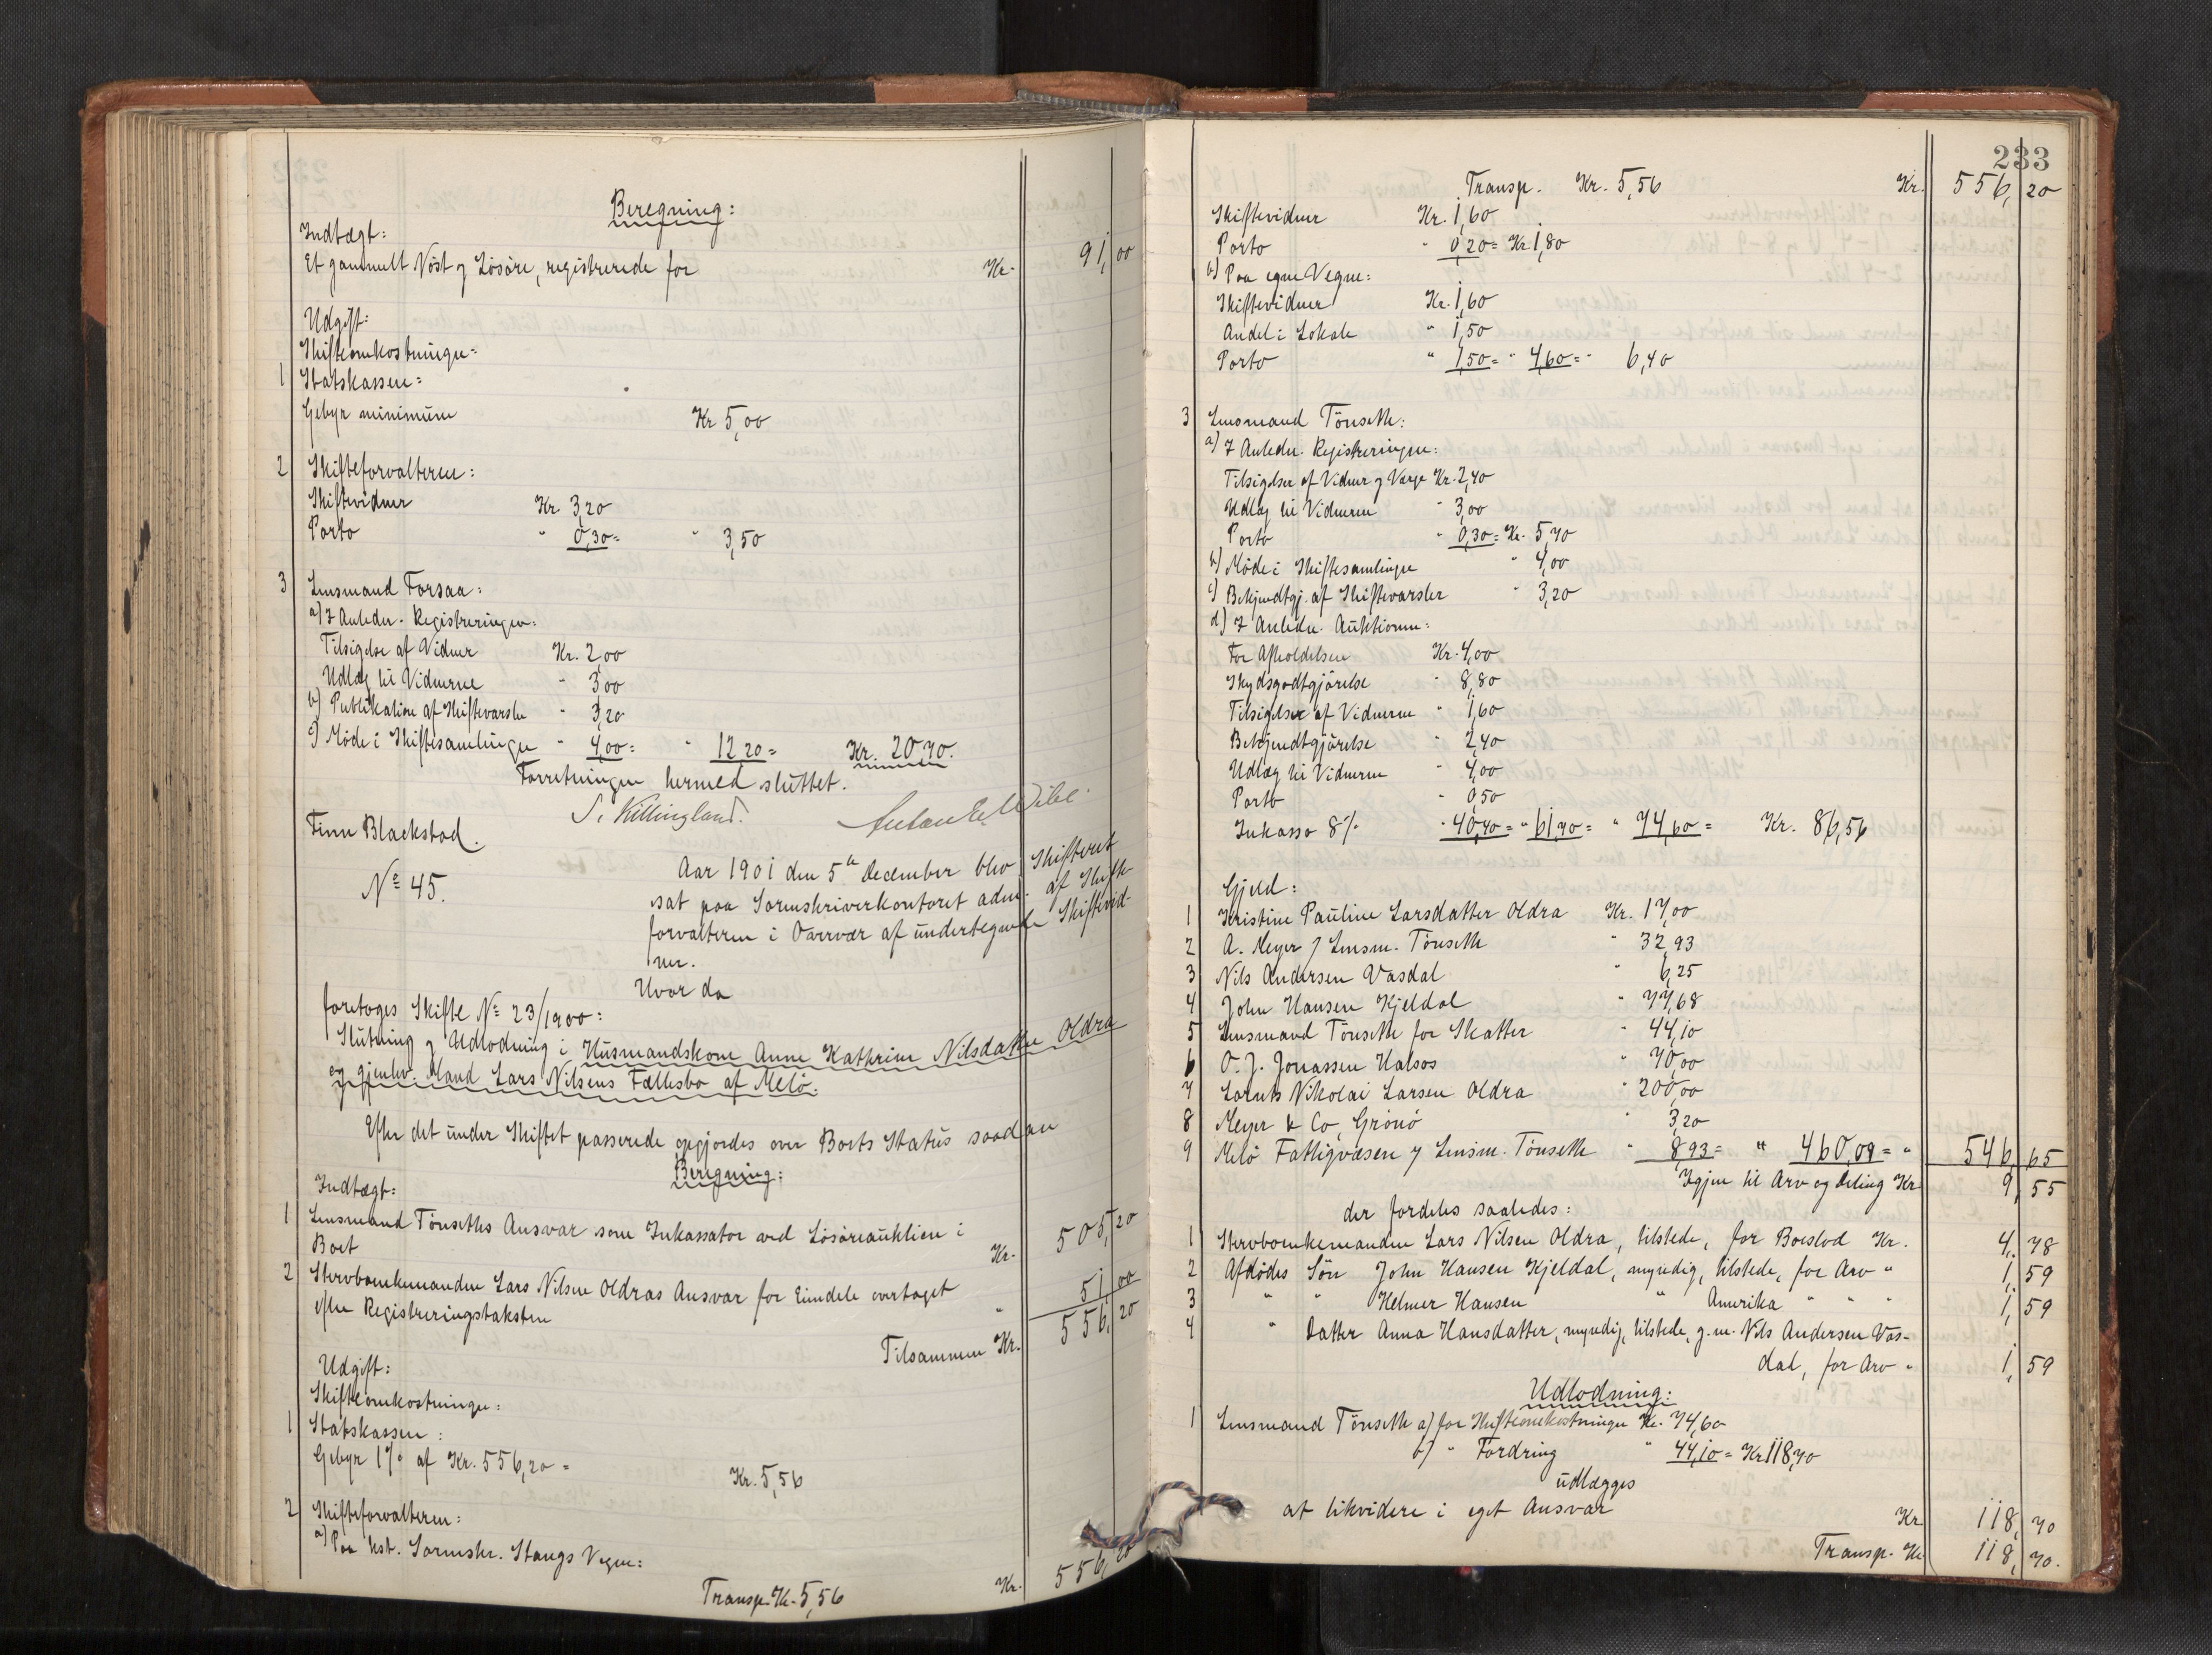 Beregning:
Indtægt:
Et gammelt Nöst og Lösöre, registrerede for Kr. 91,00
Udgift:
Skifteomkostninger:
1 Statskassen:
Gebyr minimum Kr 5,00
2 Skifteforvalteren:
Skiftevidner Kr 3,20
Porto " 0,30= " 3,50
3 Lensmand Forsaa:
a) I Anledn. Registreringen:
Tilsigelse af Vidner Kr. 2,00
Udlæg til Vidnerne " 3,00
b) Publikation af Skiftevarsler " 3,20
c) Möde i Skiftesamlinger " 4,00= " 12,20= Kr. 20,70.
Forretningen hermed sluttet.
Finn Blackstad. S. Killingland.
No 45.
Aar 1901 den 5te December blev Skifteret
sat paa Sorenskriverkontoret adm. af Skifte-
forvalteren i Overvær af undertegnede Skiftevid-
ner.
Hvor da
foretoges Skifte No 23/1900:
Slutning og Udlodning i Husmandskone Anne Kathrine Nilsdatter Oldra
og gjenlev. Mand Lars Nilsens Fællesbo af Melö.
Efter det under Skiftet passerede opgjordes over Boets Status saadan
Beregning:
Indtægt:
1 Lensmand Tönseths Ansvar som Inkassator ved Lösöreauktion i
Boet Kr. 505,20
2 Stervboenkemanden Lars Nilsen Oldras Ansvar for Eiendele overtaget
efter Registreringstaksten " 51,00
Tilsammen Kr. 556,20
Udgift:
Skifteomkostninger:
1 Statskassen:
Gebyr 1% af Kr. 556,20 = Kr. 5,56
2 Skifteforvalteren:
a) Paa kst. Sorenskr. Stangs Vegne:
Transp. Kr. 5,56 Kr. 556,20
233
Transp. Kr. 5,56 Kr. 556,20
Skiftevidner Kr. 1,60
Porto " 0,20= Kr. 1,80
b) Paa egne Vegne:
Skiftevidner Kr. 1,60
Andel i Lokale " 1,50
Porto " 1,50= " 4,60= " 6,40
3 Lensmand Tönseth:
a) I Anledn. Registreringen:
Tilsigelse af Vidner og Værge Kr. 2,40
Udlæg til Vidnerne " 3,00
Porto " 0,30= Kr. 5,70
b) Möde i Skiftesamlinger " 4,00
c) Bekjendtgj. af Skiftevarsler " 3,20
d) I Anledn. Auktionen:
For Afholdelsen Kr. 4,00
Skydsgodtgjörelse " 8,80
Tilsigelse af Vidnerne " 1,60
Bekjendtgjörelse " 2,40
Udlæg til Vidnerne " 4,00
Porto " 0,50
Inkasso 8% " 40,40= " 61,70= " 74,60= Kr. 86,56
Gjeld:
1 Kristine Pauline Larsdatter Oldra Kr. 17,00
2 A. Meyer v/ Lensm. Tönseth " 32,93
3 Nils Andersen Vasdal " 6,25
4 John Hansen Kjeldal " 77,68
5 Lensmand Tönseth for Skatter " 44,10
6 O. J. Jonassen Halsos " 70,00
7 Lorents Nikolai Larsen Oldra " 200,00
8 Meyer & Co, Grönö " 3,20
9 Melö Fattigvæsen v/ Lensm. Tönseth " 8,93= " 460,09= " 546,65
Igjen til Arv og Deling Kr. 9,55
der fordeles saaledes:
1 Stervboenkemanden Lars Nilsen Oldra, tilstede, for Boeslod Kr. 4,78
2 Afdödes Sön John Hansen Kjeldal, myndig, tilstede, for Arv " 1,59
3 " " Helmer Hansen " Amerika " " " 1,59
4 " Datter Anna Hansdatter, myndig, tilstede, g. m. Nils Andersen Vas-
dal, for Arv " 1,59
Udlodning:
1 Lensmand Tönseth a) for Skifteomkostninger Kr. 74,60
b) " Fordring " 44,10= Kr 118,70
udlægges
at likvidere i eget Ansvar Kr. 118,70
Transp. Kr. 118,70.